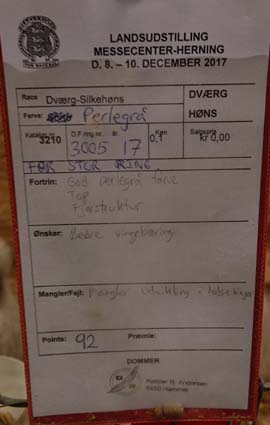 LANDSUDSTILLING
MESSECENTER-HERNING
D. 8. – 10. DECEMBER 2017
Race: Dværg-Silkehøns
DVÆRG
Farve: Perlegrå
HØNS
Katalog nr. D.F.ring nr. år Køn Salgspris
3210 3005 17 0,1 kr 0,00
FOR STOR RING
Fortrin: God perlegrå farve
Top
Fjerstruktur
Ønsker: Bedre vingebæring
Mangler/Fejl: Mangler udvikling i
Points: 92 Præmie:
DOMMER
B. Andersen
8450 Hammel